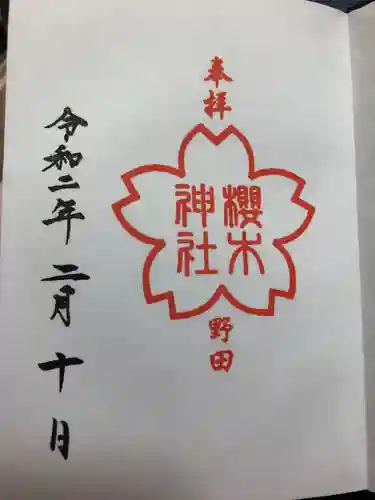 奉拝
櫻木
神社
野田
令和二年二月十日